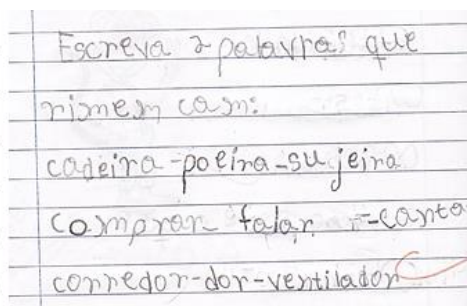 Escreva 2 palavras que
rimem com:
cadeira-poeira-sujeira
comprar falar -canta
corredor-dor-ventilador